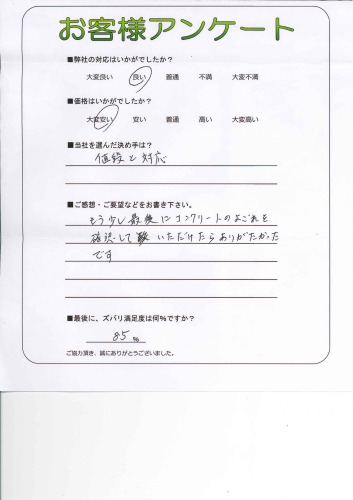 お客様アンケート
■弊社の対応はいかがでしたか？
大変良い 良い 普通 不満 大変不満
■価格はいかがでしたか？
大変安い 安い 普通 高い 大変高い
■当社を選んだ決め手は？
値段と対応
■ご感想・ご要望などをお書き下さい。
もう少し最後にコンクリートのよごれを
確認して いただけたらありがたかった
です
■最後に、ズバリ満足度は何％ですか？
85％
ご協力頂き、誠にありがとうございました。